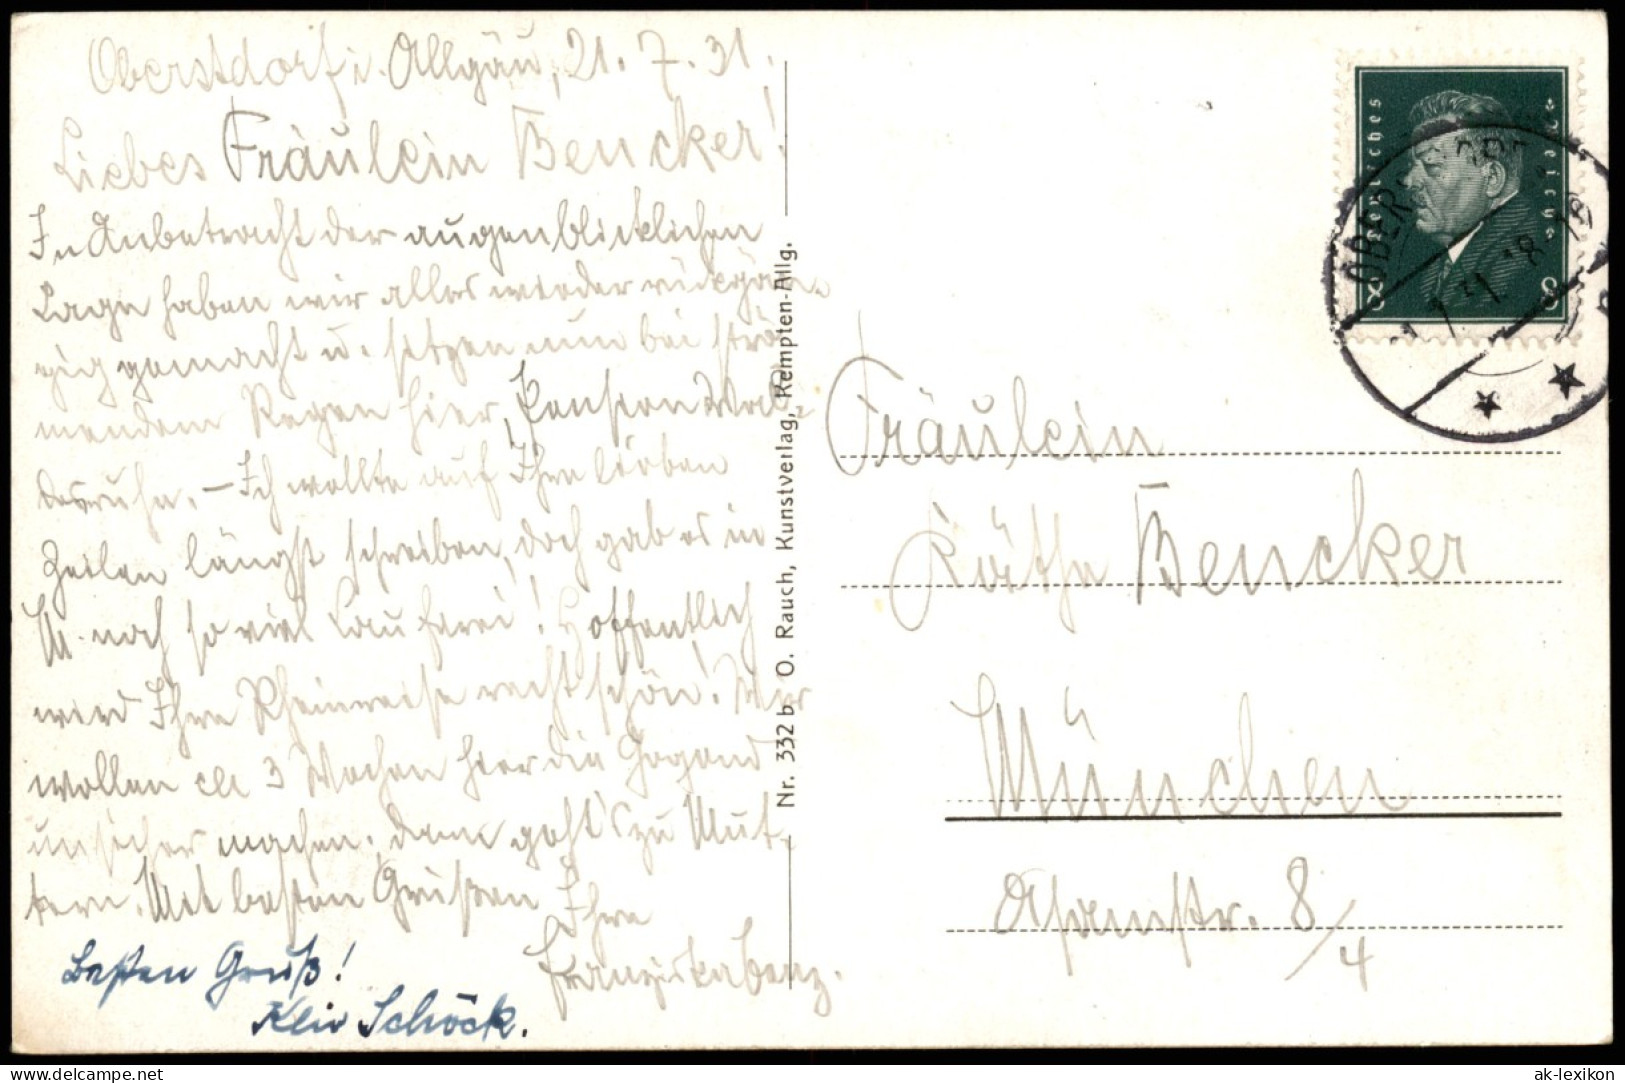 Oberstdorf i. Allgäu, 21.7.31.
Liebes Fräulein Bencker!
In Anbetracht der augenblicklichen
Lage haben wir alles wieder rückgän-
gig gemacht u. sitzen nun bei strö-
mendem Regen hier, Pension Wal-
desruhe. – Ich wollte auf Ihre lieben
Zeilen längst schreiben, doch gab es in
M. noch so viel Lauferei! Hoffentlich
wird Ihre Rheinreise recht schön! Wir
wollen ca 3 Wochen hier die Gegend
unsicher machen, dann geht's zu Mut-
tern. Mit besten Grüßen Ihre
Franziska Benz.
Besten Gruß!
Schöck.
Nr. 332 b O. Rauch, Kunstverlag, Kempten-Allg.
Deutsches Reich
8 8
Fräulein
Käthe Bencker
München
Asamstr. 8/4
ak-lexikon